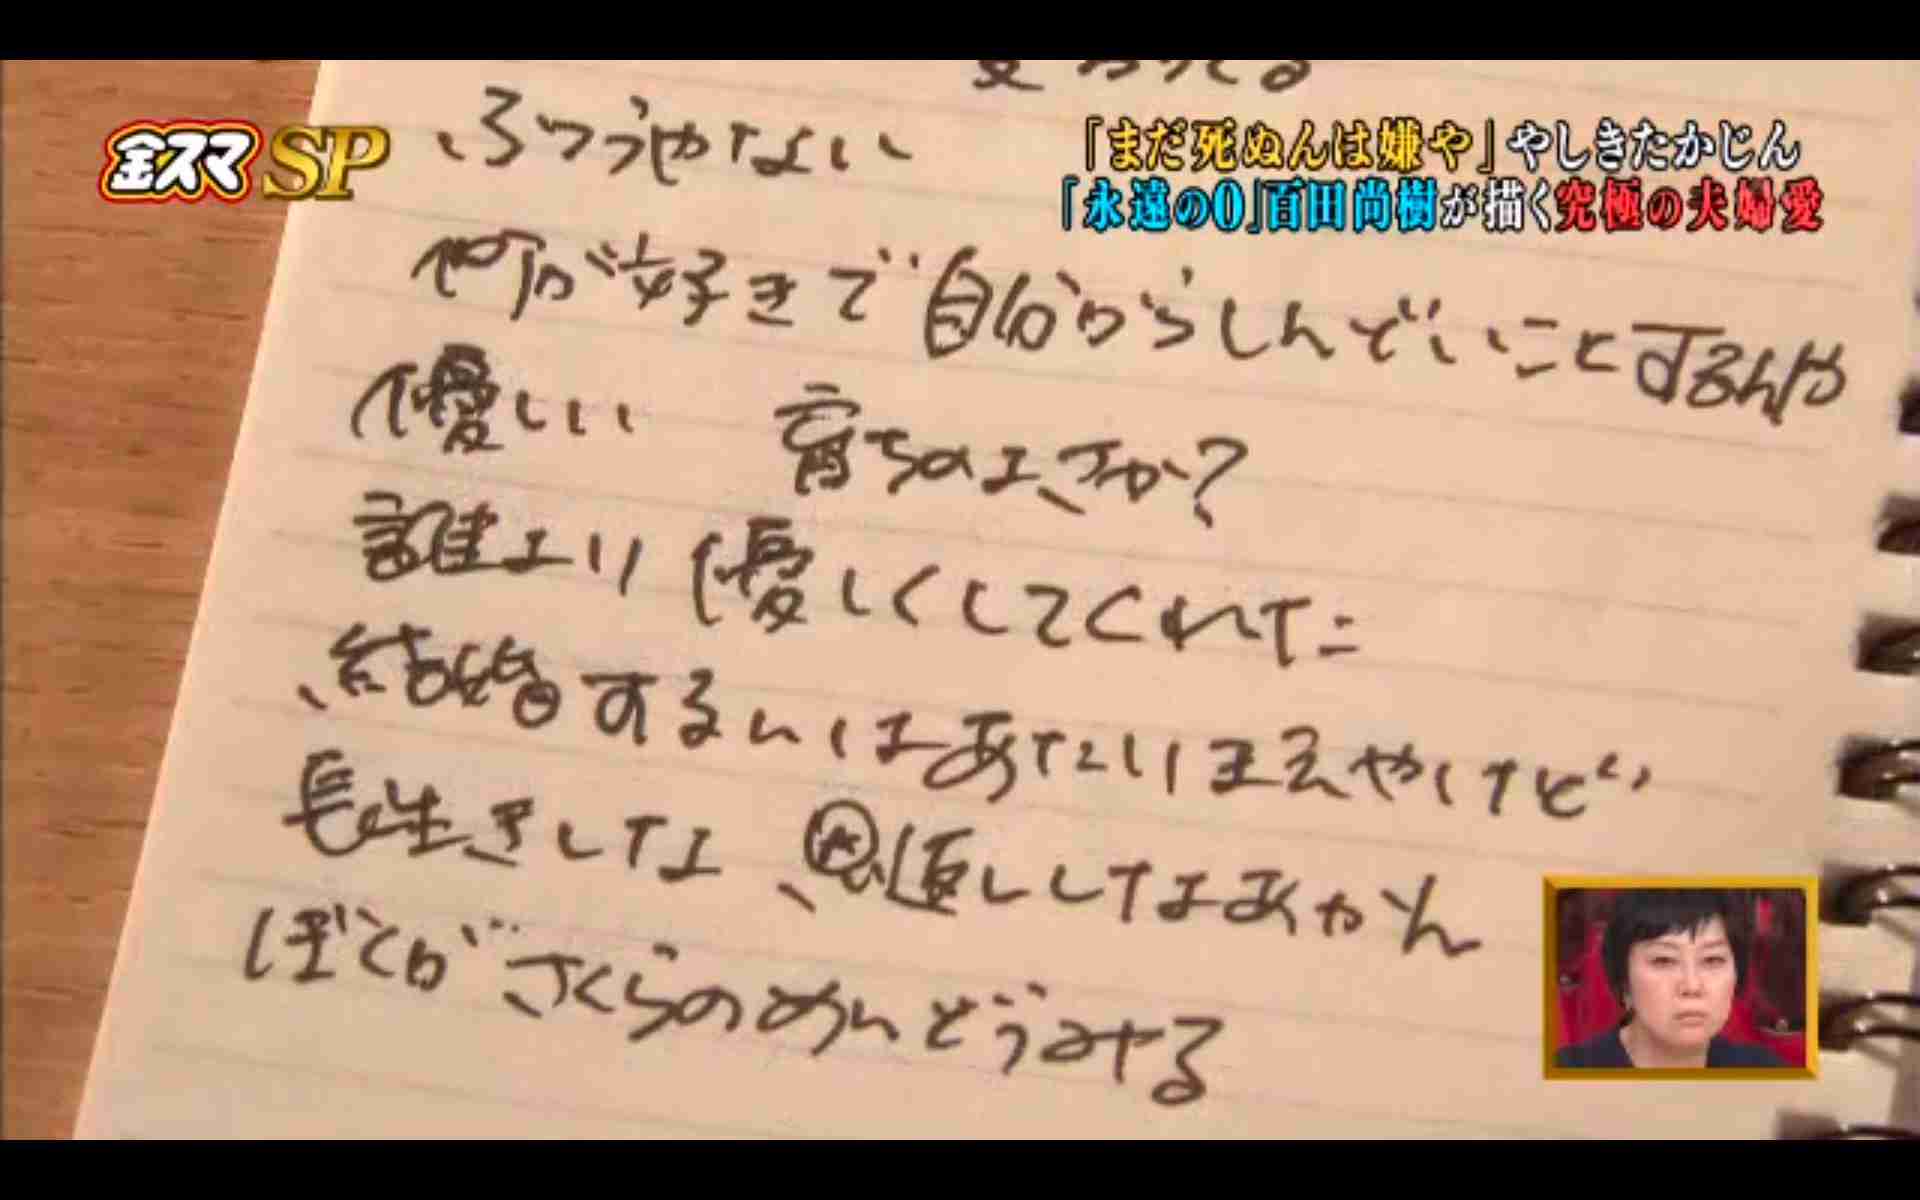 変わってる
金スマSP
「まだ死ぬんは嫌や」やしきたかじん
「永遠の0」百田尚樹が描く究極の夫婦愛
ふつうやない
何が好きで自分からしんどいことするんや
優しい 育ちのよさか?
誰より優しくしてくれた
結婚するんはあたりまえやけど
長生きしたよ 恩返ししたよあかん
ぼくがさくらのめんどうみやる